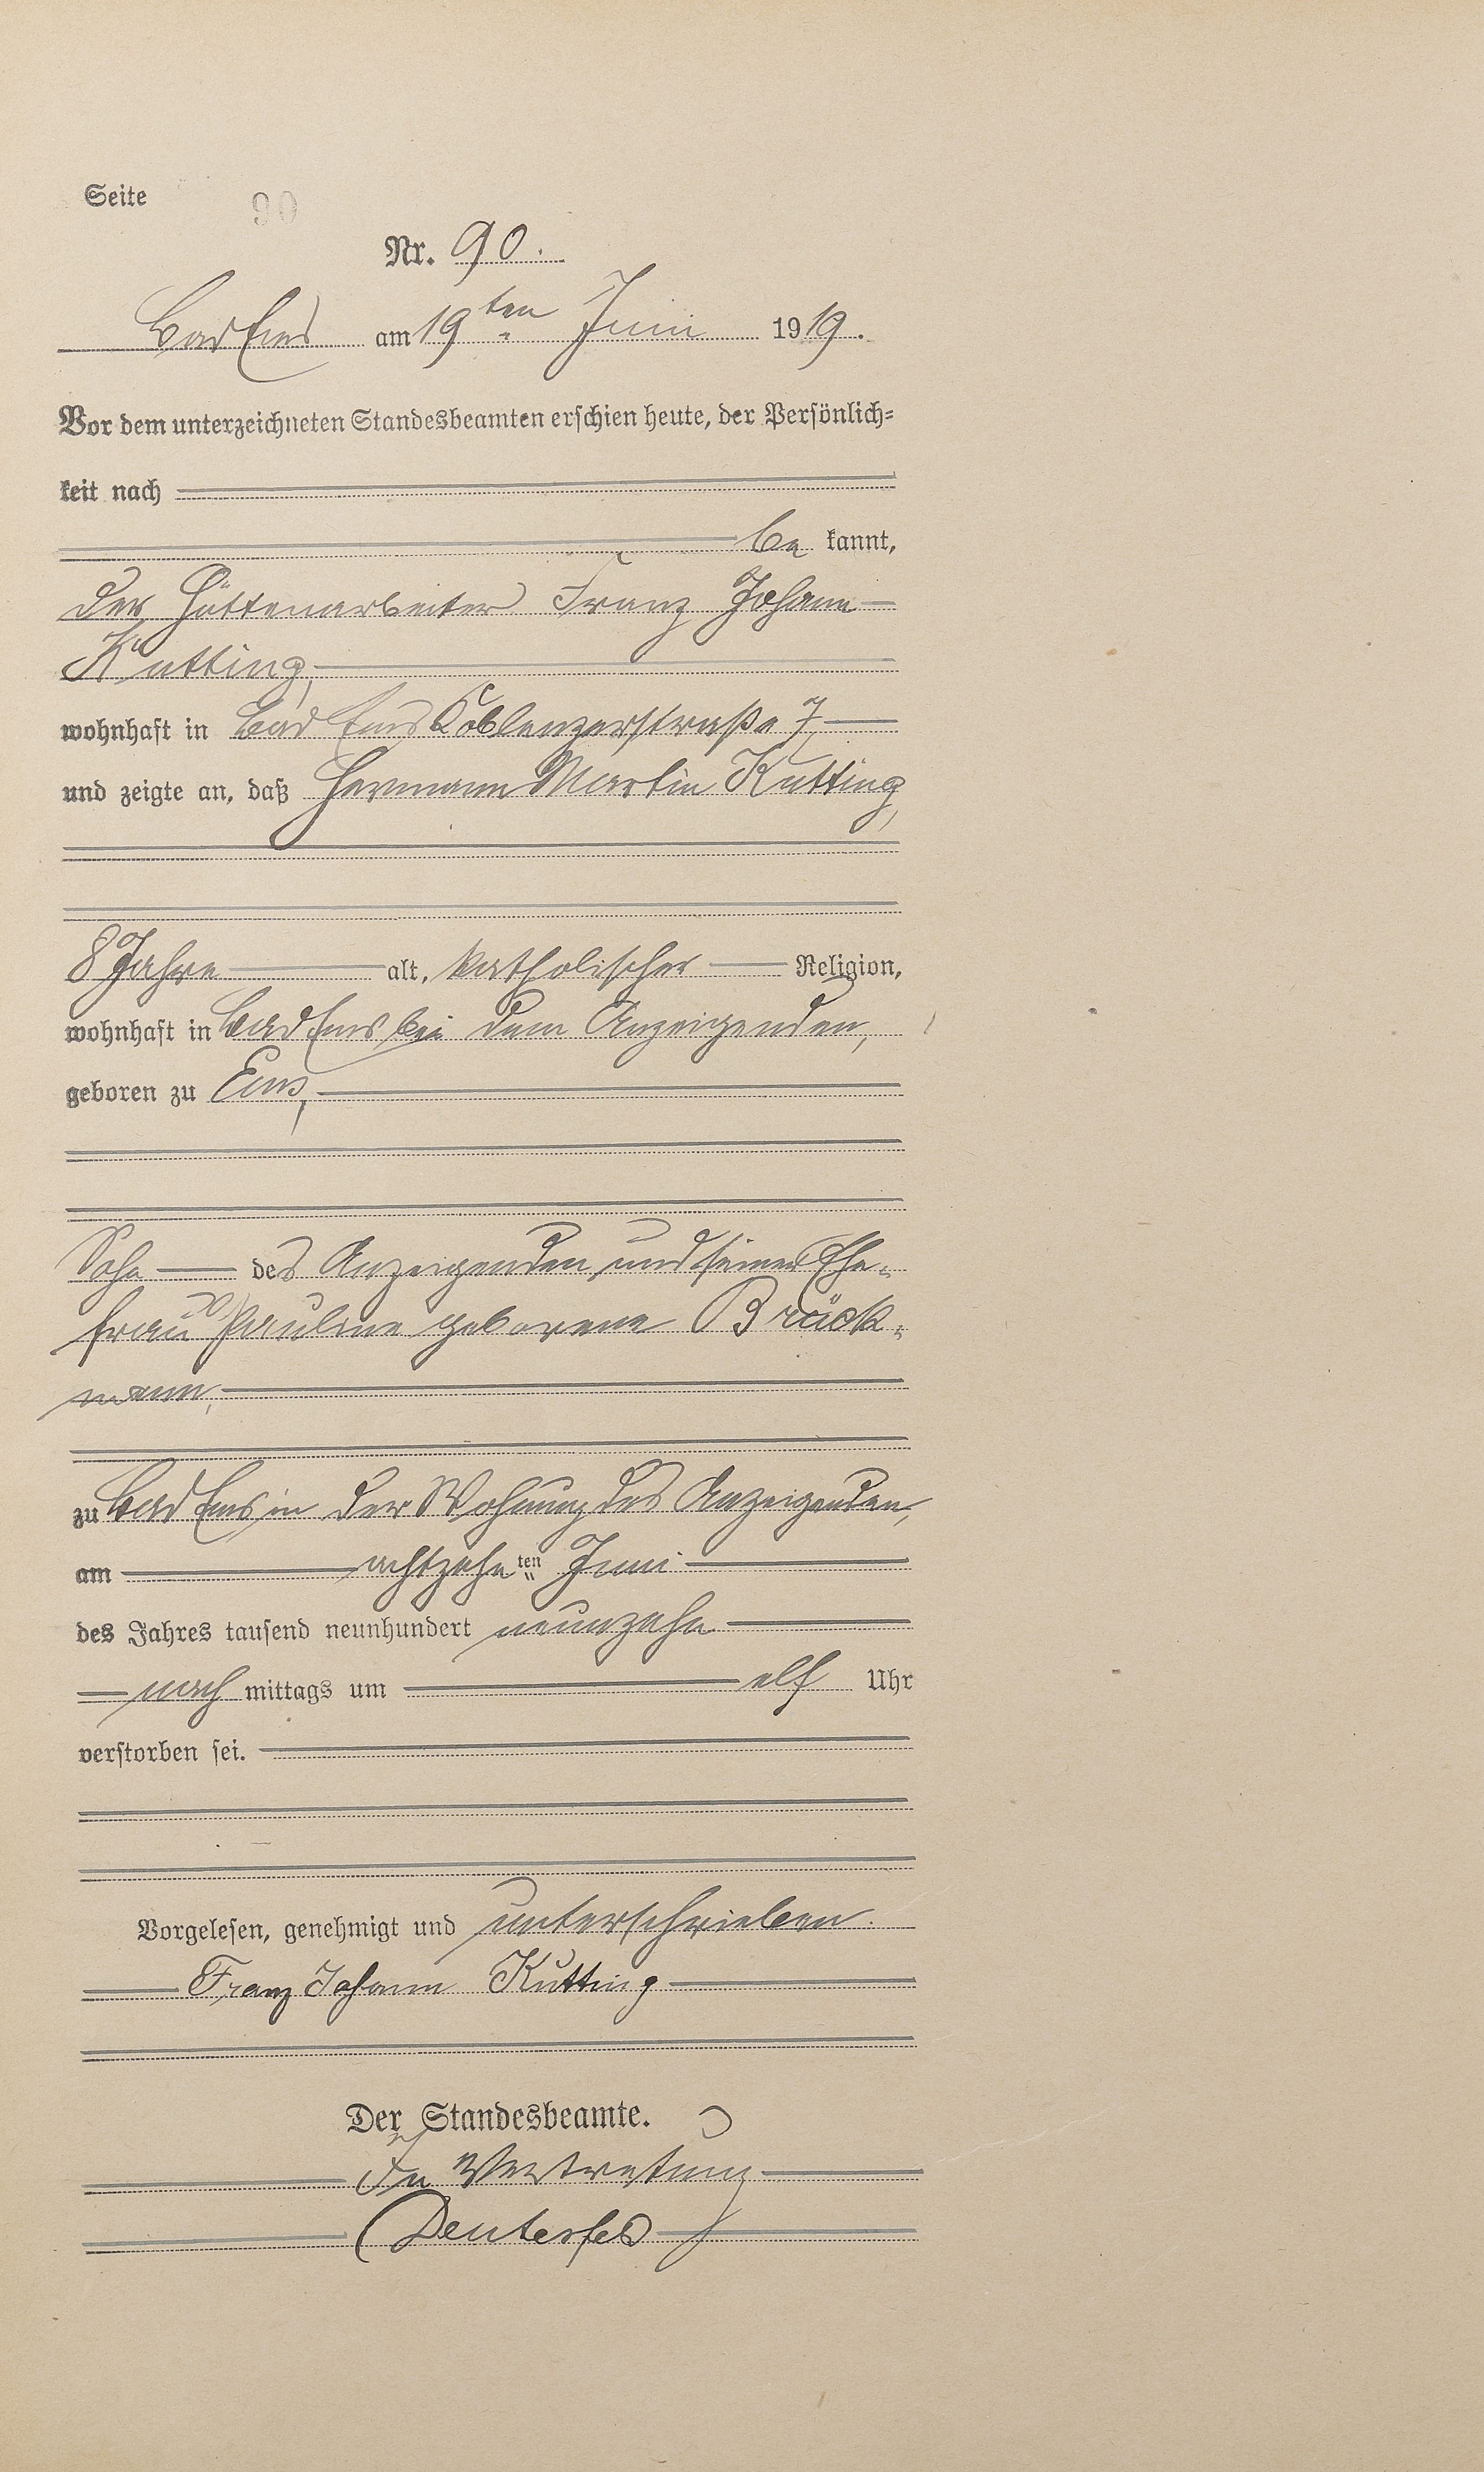 Seite 90
Nr. 90.
Bad Ems am 19ten Juni 1919.
Vor dem unterzeichneten Standesbeamten erschien heute, der Persönlich=
keit nach
be kannt,
der Hüttenarbeiter Franz Johann
Kutting,
wohnhaft in Bad Ems Coblenzerstraße 7,
und zeigte an, daß Hermann Martin Kutting,
8 Jahre alt, katholischer Religion,
wohnhaft in Bad Ems bei dem Anzeigenden,
geboren zu Ems,
Sohn des Anzeigenden und seiner Ehe=
frau Pauline geborene Brück=
mann,
zu Bad Ems in der Wohnung des Anzeigenden,
am achtzehnten Juni
des Jahres tausend neunhundert neunzehn
nach mittags um elf Uhr
verstorben sei.
Vorgelesen, genehmigt und unterschrieben.
Franz Johann Kutting
Der Standesbeamte.
In Vertretung